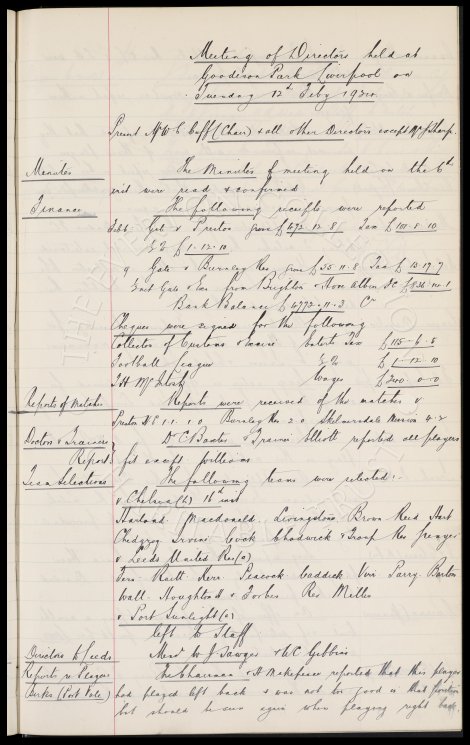 Meeting of Directors held at
Goodison Park Liverpool on
Tuesday 12th Feby 1924
Present Mr W C Cuff (Chair) & all other Directors except Mr J Sharp.
Minutes
The Minutes of meeting held on the 6th
inst were read & confirmed
Finance
The following receipts were reported
Gate v Preston gross £ 472.12.8 Tax £
£ 1.12.10
9 Gate v Burnley Res gross £ 35 11.8 Tax £ 13 17 7
Gate from Brighton & Hove Albion FC
Bank Balance £ 4772.11.3 Cr
Cheques were signed for the following
Collector of Customs & Excise Ents Tax £ 115.6.8
Football League £ 1.12.10
Wages £ 0-0
Reports of Matches
Reports were received of the matches v
Preston N.E 1.1 Burnley Res 2.0 Skelmersdale
Doctors & Trainers
Report
Dr C Baxter & Trainer Elliott reported all players
fit except
Team Selections
The following teams were selected:-
v Chelsea (h) 16th inst
Harland Macdonald Livingstone Brown Reid Hart
Chedgzoy Irvine Cock Chadwick & Troup Res
v Leeds United Res (a)
Fern Raitt Kerr Peacock Caddick Virr Parry
Wall & Forbes Res Miller
v Port Sunlight (a)
left to Staff
Directors to Leeds
Messrs W J Sawyer & W C Gibbins
Reports re Players
(Port Vale)
The Chairman & H Makepeace reported that this player
had played left back & was not too good in that position
but should be seen again when playing right back.
THE EVERTON